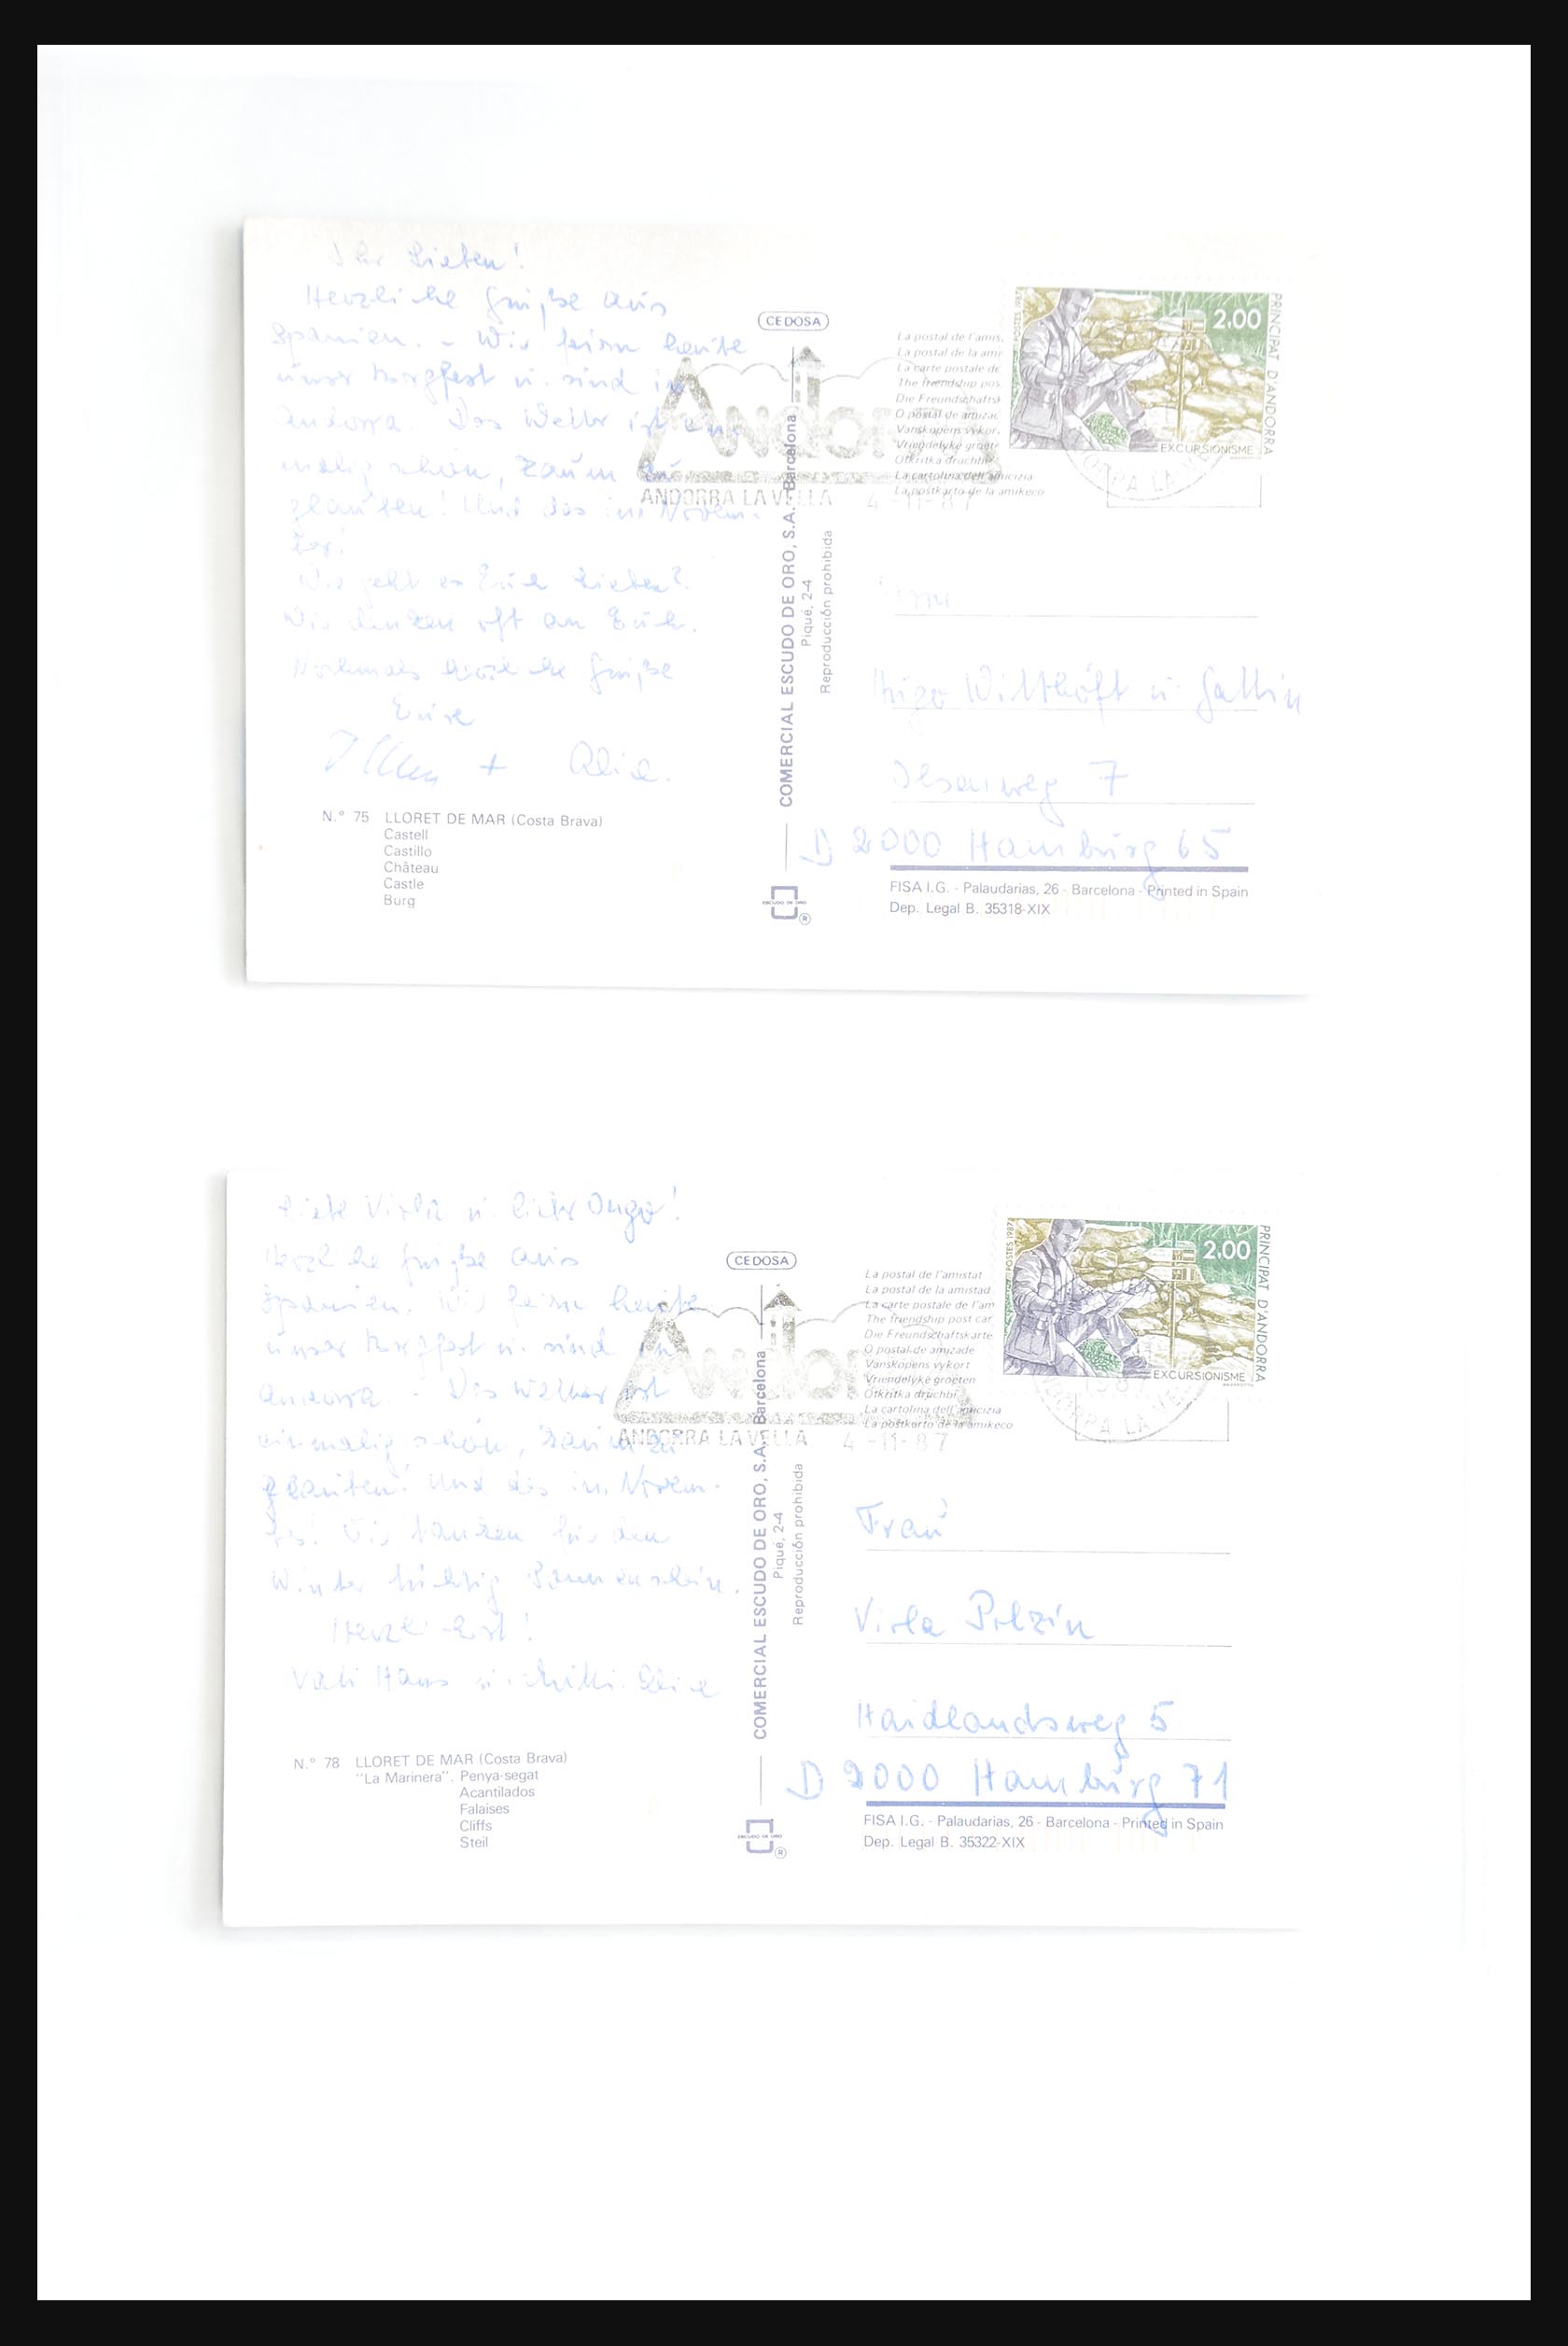 Ihr Lieben!
Herzliche Grüße aus
Spanien. - Wir feiern heute
unser Bergfest u. sind in
Andorra. Das Wetter ist ein-
malig schön, kaum zu
glauben! Und das im Novem-
ber!
Wie geht es Euch Lieben?
Wir denken oft an Euch.
Nochmals herzliche Grüße
Eure
+ Alice.
N.° 75 LLORET DE MAR (Costa Brava)
Castell
Castillo
Château
Castle
Burg
CEDOSA
COMERCIAL ESCUDO DE ORO, S.A. - Barcelona
Piqué, 2-4
Reproducción prohibida
ESCUDO DE ORO
®
Andorra
ANDORRA LA VELLA 4-11-87
La postal de l'amis
La postal de la ami
La carte postale de
The friendship pos
Die Freundschaftsk
O postal de amizac
Vänskapens vykor
Vriendelyke groete
Otkritka druchbi
La cartolina dell'amicizia
La postkarto de la amikeco
POSTES 1987
2,00
PRINCIPAT D'ANDORRA
EXCURSIONISME
ORRA LA VE
Hugo Witthöft u. Gattin
Ilsenweg 7
D 2000 Hamburg 65
FISA I.G. - Palaudarias, 26 - Barcelona - Printed in Spain
Dep. Legal B. 35318-XIX
Liebe Viola u. lieber Ingo!
Herzliche Grüße aus
Spanien. Wir feiern heute
unser Bergfest u. sind in
Andorra. Das Wetter ist
einmalig schön, kaum zu
glauben! Und das im Novem-
ber! Wir tanken für den
Winter tüchtig Sonnenschein.
Herzlichst!
Vati Hans u. Mutti Alice
N.° 78 LLORET DE MAR (Costa Brava)
"La Marinera". Penya-segat
Acantilados
Falaises
Cliffs
Steil
CEDOSA
COMERCIAL ESCUDO DE ORO, S.A. - Barcelona
Piqué, 2-4
Reproducción prohibida
ESCUDO DE ORO
®
Andorra
ANDORRA LA VELLA 4-11-87
La postal de l'amistat
La postal de la amistad
La carte postale de l'am
The friendship post car
Die Freundschaftskarte
O postal de amizade
Vänskapens vykort
Vriendelyke groeten
Otkritka druchbi
La cartolina dell'amicizia
La postkarto de la amikeco
POSTES 1987
2,00
PRINCIPAT D'ANDORRA
EXCURSIONISME
1987
DORRA LA VE
Frau
Viola Polzin
Haidlandsweg 5
D 2000 Hamburg 71
FISA I.G. - Palaudarias, 26 - Barcelona - Printed in Spain
Dep. Legal B. 35322-XIX